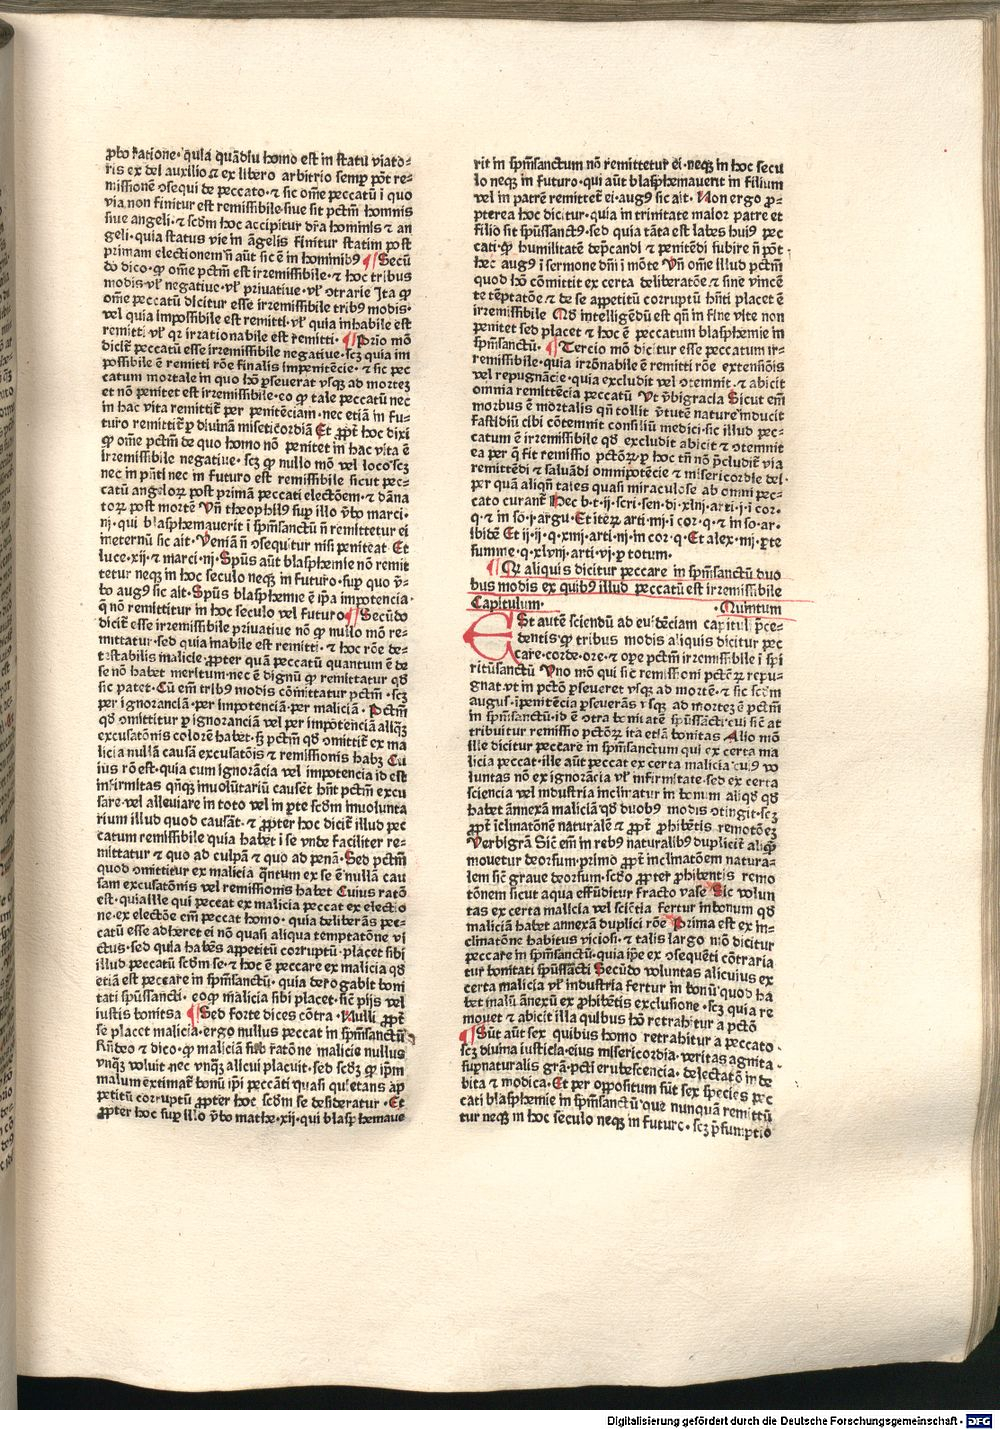 ꝓbo ratione·q̄uia quādiu homo est in statu viato⸗
ris ex dei auxilio ⁊ ex libero arbitrio semꝑ pōt re⸗
missionē ↄsequi de peccato·⁊ sic om̄e peccatū i quo
via non finitur est remissibile siue sit pctm̄ hominis
siue angeli·⁊ scd̄m hoc accipitur dr̄a hominis ⁊ an
geli·quia status vie in āgelis finitur statim post
primam electionem n̄ aūt sic ē in hominibꝰ ¶ Secū
do dico·ꝙ om̄e pctm̄ est irremissibile·⁊ hoc tribus
modis·vl̓ negatiue·vl̓ priuatiue·vl̓ ↄtrarie Ita ꝙ
om̄e peccatū dicitur esse irremissibile tribꝰ modis·
vel quia impossibile est remitti·vl̓ quia inhabile est
remitti vl̓ qr irrationabile est remitti·¶ Prīo mō
dicit̄ peccatū esse irremissibile negatiue·scꝫ quia im
possibile ē remitti rōe finalis impenitēcie·⁊ sic pec
catum mortale in quo hō ꝑseuerat vsqꝫ ad mortez
et nō penitet est irremissibile·eo ꝙ tale peccatū nec
in hac vita remittit̄ per penitēciam·nec etiā in fu⸗
turo remittit̄ ꝑ diuinā misericordiā Et ꝓpt̄ hoc dixi
ꝙ om̄e pctm̄ de quo homo nō penitet in hac vita ē
irremissibile negatiue·scꝫ ꝙ nullo mō vel loco scꝫ
nec in pn̄ti nec in futuro est remissibile sicut pec⸗
catū angeloꝝ post primā peccati electōem·⁊ dāna
toꝝ post mortē Vn̄ theophilꝰ suꝑ illo v̄bo marci·
iij·qui blasphemauerit i spm̄sanctū n̄ remittetur ei
ineternū sic ait·Veniā n̄ ↄsequitur nisi peniteat Et
luce·xij·⁊ marci·iij·Spūs aūt blasphemie nō remit
tetur neqꝫ in hoc seculo neqꝫ in futuro·suꝑ quo v̄⸗
bo augꝰ sic ait·Spūs blasphemie ē ip̄a impotencia·
q̄ nō remittitur in hoc seculo vel futuro ¶ Secūdo
dicit̄ esse irremissibile priuatiue nō ꝙ nullo mō re⸗
mittatur·sed quia inabile est remitti·⁊ hoc rōe de⸗
testabilis malicie·ꝓpter quā peccatū quantum ē de
se nō habet meritum·nec ē dignū ꝙ remittatur qd̄
sic patet·Cū em̄ tribꝰ modis cōmittatur pctm̄·scꝫ
per ignoranciā·per impotenciā·per maliciā·Pctm̄
qd̄ ↄmittitur ꝑ ignoranciā vel per impotenciā aliqꝫ
excusatōnis colorē habet·sꝫ pctm̄ qd̄ ↄmittit̄ ex ma
licia nullā causā excusatōis ⁊ remissionis habꝫ Cu
ius rō est·quia cum ignorācia vel impotencia id est
infirmitas qn̄qꝫ inuolūtariū causēt hn̄t pctm̄ excu
sare·vel alleuiare in toto vel in ꝑte scd̄m inuolunta
rium illud quod causāt·⁊ ꝓpter hoc dicit̄ illud pec
catum remissibile quia habet i se vnde faciliter re⸗
mittatur ⁊ quo ad culpā ⁊ quo ad penā·Sed pctm̄
quod ↄmittitur ex malicia q̄ntum ex se ē nullā cau
sam excusatōnis vel remissionis habet Cuius ratō
est·quia ille qui peccat ex malicia peccat ex electio
ne·ex electōe em̄ peccat homo·quia deliberās pec⸗
catū esse adheret ei nō quasi aliqua temptatōne vi
ctus·sed quia habēs appetitū corruptū·placet sibi
illud peccatū scd̄m se·⁊ hoc ē peccare ex malicia qd̄
etiā est peccare in spm̄sanctū·quia derogabit boni
tati spūssancti·eoqꝫ malicia sibi placet·sic̄ pijs vel
iustis bonitsa ¶ Sed forte dices cōtra·Nulli ꝓpt̄
se placet malicia·ergo nullus peccat in spm̄sanctū
Rn̄deo ⁊ dico·ꝙ maliciā sub r̄atōne malicie nullus
vnqꝫ voluit nec vnqꝫ alicui placuit·sed scd̄ꝫ ꝙ ip̄m
malum extimat̄ bonū ip̄i peccāti quasi quietans ap
petitū corruptū ꝓpter hoc scd̄m se desideratur·Et
ꝓpter hoc suꝑ illo v̄bo mathe·xij·qui blasphemaue
rit in spm̄sanctum nō remittetur ei·neqꝫ in hoc secu
lo neqꝫ in futuro·qui aūt blasphemauerit in filium
vel in patrē remittet̄ ei·augꝰ sic ait·Non ergo ꝓ⸗
pterea hoc dicitur·quia in trinitate maior patre et
filio sit spūssanctꝰ·sed quia tāta est labes huiꝰ pec
cati·ꝙ humilitatē dep̄candi ⁊ penitēdi subire n̄ pōt·
hec augꝰ i sermone dn̄i i mōte Vn̄ om̄e illud pctm̄
quod hō cōmittit ex certa deliberatōe ⁊ sine vincē
te tēptatōe ⁊ de se appetitū corruptū hn̄ti placet ē
irremissibile Qd̄ intelligēdū est qn̄ in fine vite non
penitet sed placet ⁊ hoc ē peccatum blasphemie in
spm̄sanctū·¶ Tercio mō dicitur esse peccatum ir⸗
remissibile·quia irrōnabile ē remitti rōe extensiōis
vel repugnācie·quia excludit vel ↄtemnit·⁊ abicit
omnia remittēcia peccatū Vt v̄bigracia Sicut em̄
morbus ē mortalis qn̄ tollit v̄tutē nature inducit
fastidiū cibi cōtemnit consiliū medici·sic illud pec⸗
catum ē irremissibile qd̄ excludit abicit ⁊ ↄtemnit
ea per q̄ fit remissio pctōꝝ·ꝑ hoc tn̄ nō p̄cludit̄ via
remittēdi ⁊ saluādi omnipotēcie ⁊ misericordie dei·
per quā aliqn̄ tales quasi miraculose ab omni pec⸗
cato curant̄ Hec b·t·ij·scri·sen·di·xliij·arti·j·i cor·
q·⁊ in so·j·argu·Et iteꝝ arti·iij·i cor·q·⁊ in so·ar·
ibidē Et ij·ij·q·xiiij·arti·iij·in cor·q·Et alex·iij·ꝑte
summe·q·xlvij·arti·vj·ꝑ totum.
¶ Qr aliquis dicitur peccare in spm̄sanctū duo
bus modis ex quibꝰ illud peccatū est irremissibile
Capitulum· ·Quintum
Est autē sciendū ad euidēciam capituli p̄ce⸗
dentis·ꝙ tribus modis aliquis dicitur pec
care·corde·ore·⁊ oꝑe pctm̄ irremissibile i spi
ritūsanctū Vno mō qui sic̄ remissioni pctōꝝ repu⸗
gnat·vt in pctō ꝑseueret vsqꝫ ad mortē·⁊ sic scd̄m
augus·īpenitēcia ꝑseuerās vsqꝫ ad mortez ē pctm̄
in spm̄sanctū·id ē ↄtra bonitatē spūssācti·cui sic̄ at
tribuitur remissio pctōꝝ ita etiā bonitas Alio mō
ille dicitur peccare in spm̄sanctum qui ex certa ma
licia peccat·ille aūt peccat ex certa malicia cuiꝰ vo
luntas nō ex ignorācia vl̓ infirmitate·sed ex certa
sciencia vel industria inclinatur in bonum aliqd̄ qd̄
habet ānexā maliciā qd̄ duobꝰ modis ↄtingit·scꝫ
ꝓpt̄ iclinatōnē naturalē ⁊ ꝓpt̄ ꝓhibētis remotōeꝫ
Verbigrā Sic̄ em̄ in rebꝰ naturalibꝰ duplicit̄ aliqꝫ
mouetur deorsum·primo ꝓpt̄ inclinatōem natura⸗
lem sic̄ graue deorsum·scd̄o ꝓpter ꝓhibentis remo
tōnem sicut aqua effūditur fracto vase Sic volun
tas ex certa malicia vel sciētia fertur in bonum qd̄
maliciā habet annexā duplici rōe Prima est ex in⸗
clinatōne habitus viciosi·⁊ talis largo mō dicitur
peccare in spm̄sanctū·quia ip̄e ex ↄsequēti cōtraria
tur bonitati spūssācti Secūdo voluntas alicuius ex
certa malicia vl̓ industria fertur in bonū quod ha
bet malū ānexū ex ꝓhibētis exclusione·scꝫ quia re
mouet ⁊ abicit illa quibus hō retrahitur a pctō
¶ Sūt aūt sex quibus homo retrahitur a peccato·
scꝫ diuina iusticia·eius misericordia·veritas agnita·
suꝑnaturalis grā·pcti erubescencia·delectatō in de
bita ⁊ modica·Et per oppositum sūt sex species pec
cati blasphemie in spm̄sanctū que nunquā remittū
tur neqꝫ in hoc seculo neqꝫ in futuro·scꝫ p̄sumptio
Digitalisierung gefördert durch die Deutsche Forschungsgemeinschaft - DFG